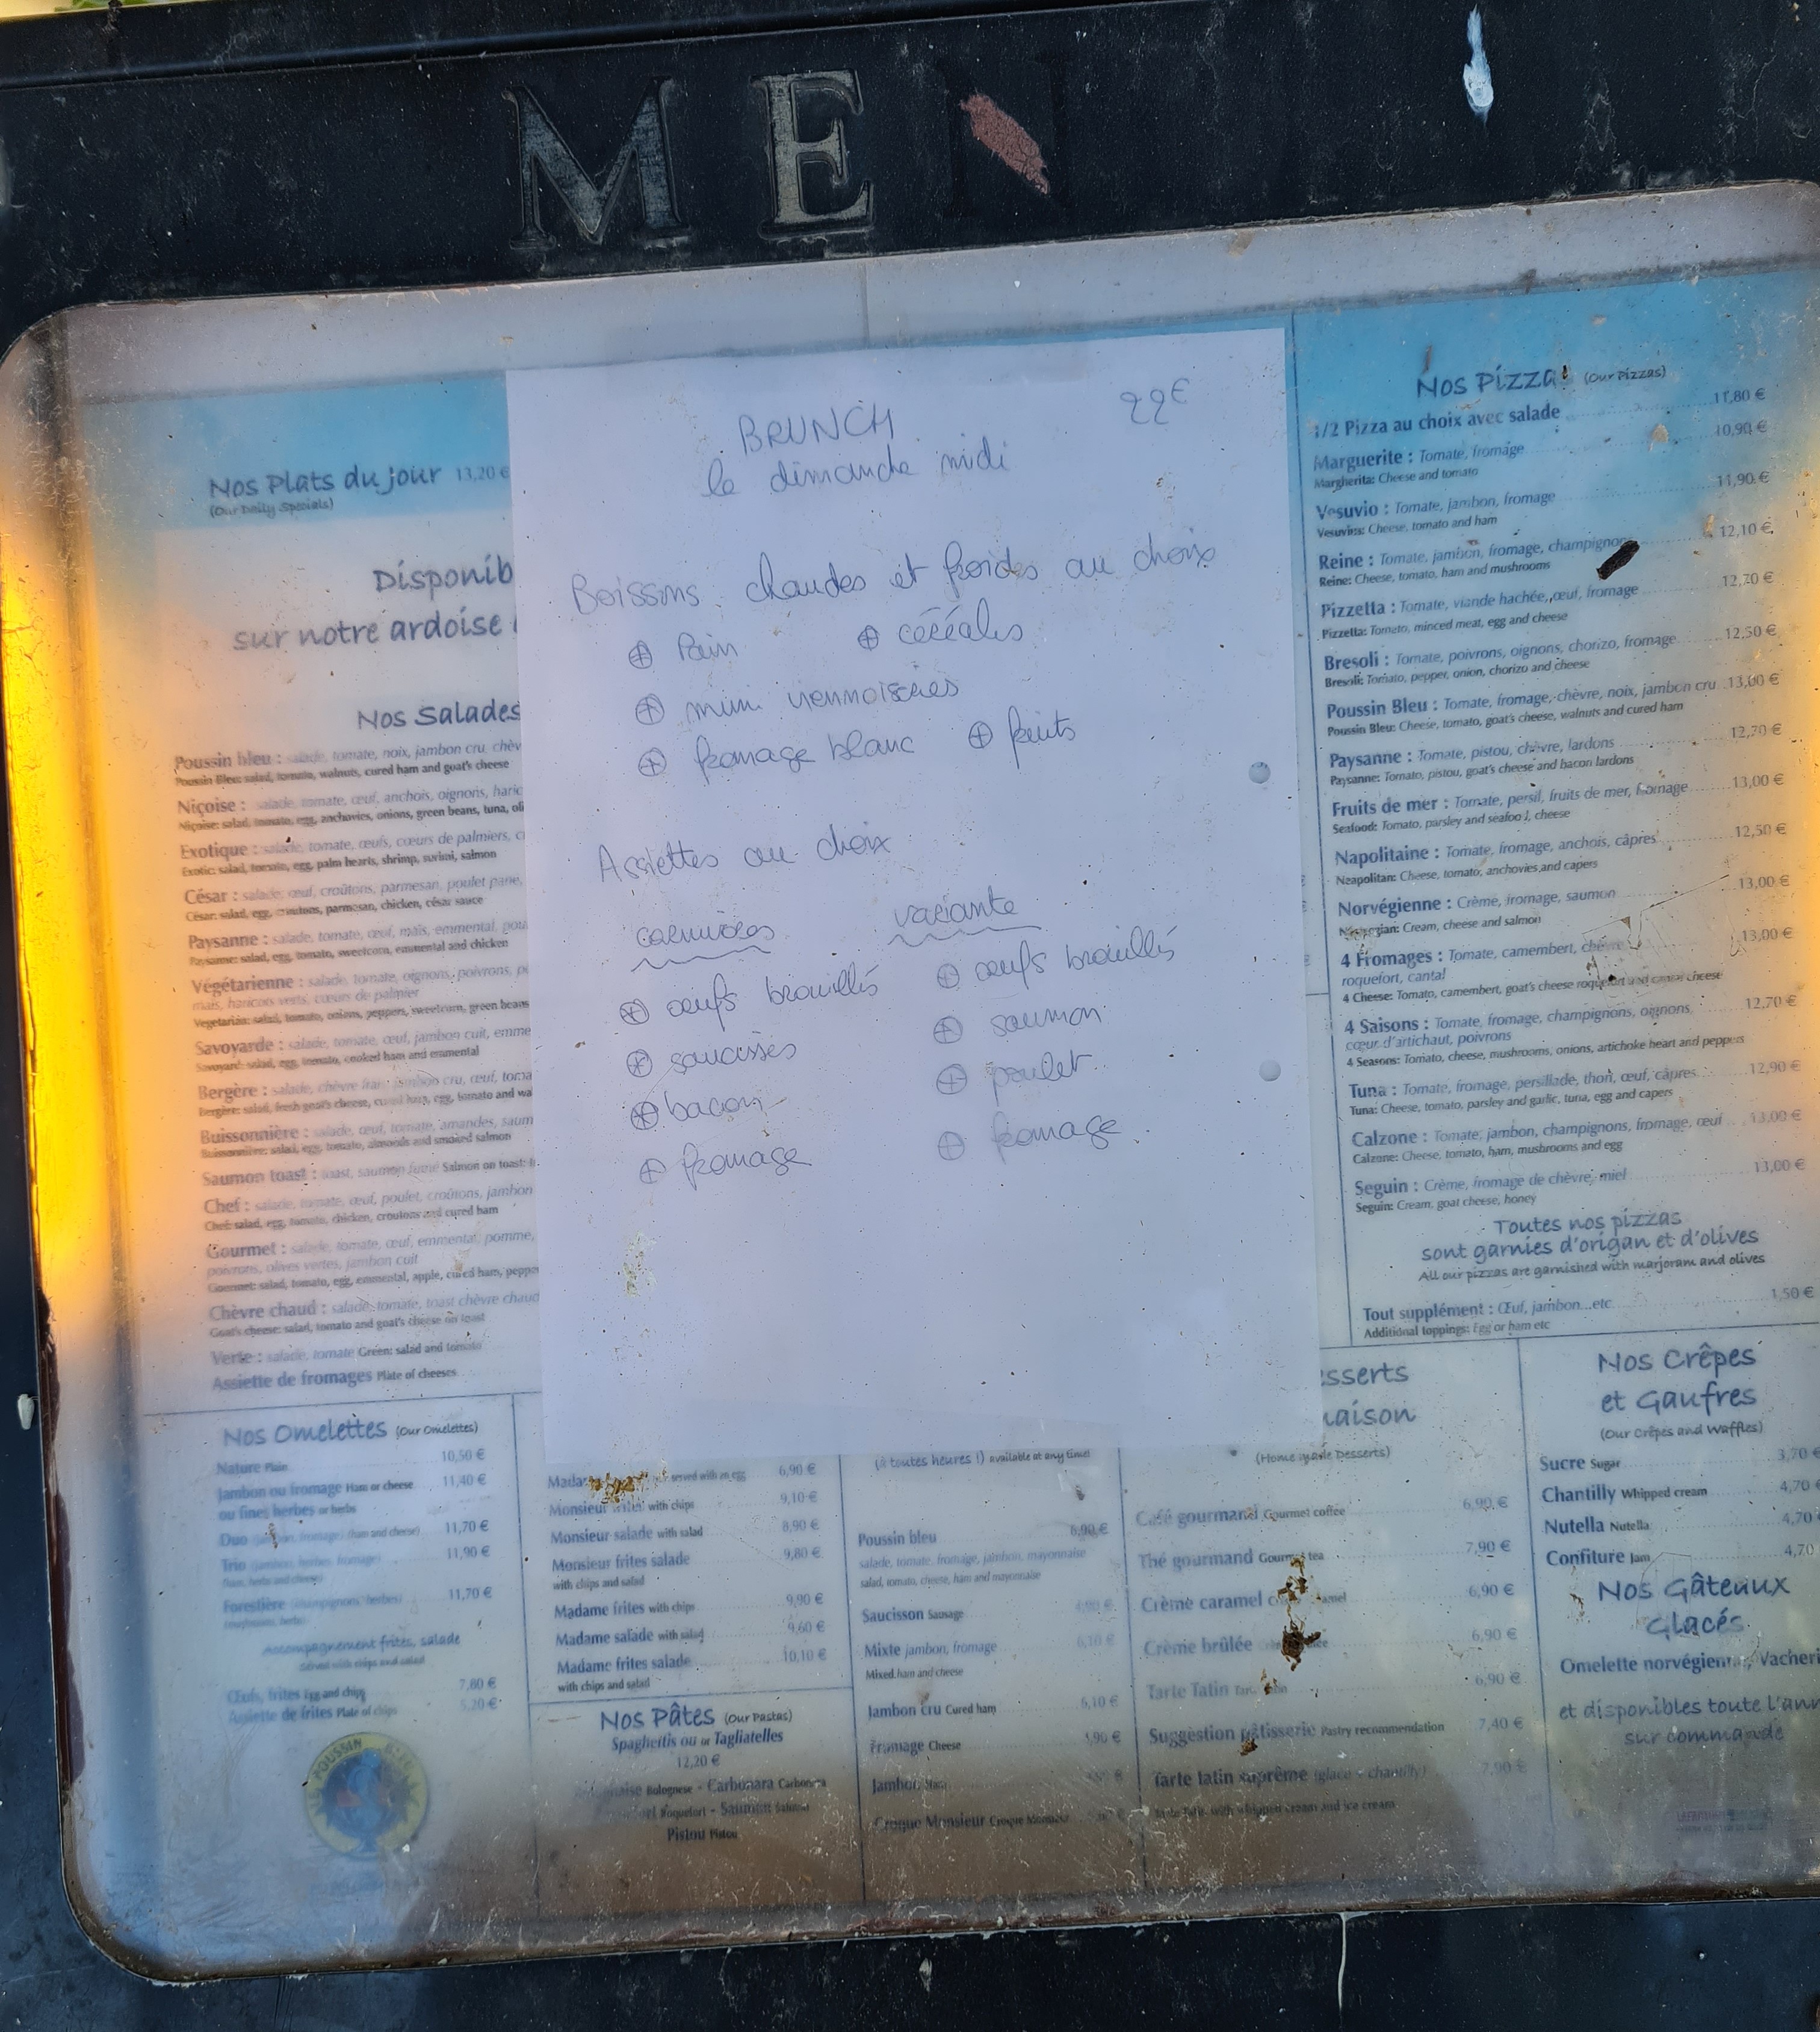 MEN
Nos Plats du jour 13,20 €
(Our Daily Specials)
Disponib
sur notre ardoise
Nos Salades
Poussin bleu : salade, tomate, noix, jambon cru, chèv
Poussin Bleu: salad, tomato, walnuts, cured ham and goat's cheese
Niçoise : salade, tomate, œuf, anchois, oignons, haric
Niçoise: salad, tomato, egg, anchovies, onions, green beans, tuna, oli
Exotique : salade, tomate, œufs, cœurs de palmiers, c
Exotic: salad, tomato, egg, palm hearts, shrimp, surimi, salmon
César : salade, œuf, croûtons, parmesan, poulet pané,
César: salad, egg, croutons, parmesan, chicken, césar sauce
Paysanne : salade, tomate, œuf, maïs, emmental, pou
Paysanne: salad, egg, tomato, sweetcorn, emmental and chicken
Végétarienne : salade, tomate, oignons, poivrons, p
maïs, haricots verts, cœurs de palmier
Vegetarian: salad, tomato, onions, peppers, sweetcorn, green beans
Savoyarde : salade, tomate, œuf, jambon cuit, emme
Savoyard: salad, egg, tomato, cooked ham and emmental
Bergère : salade, chèvre frais, jambon cru, œuf, toma
Bergère: salad, fresh goat's cheese, cured ham, egg, tomato and wa
Buissonnière : salade, œuf, tomate, amandes, saum
Buissonnière: salad, egg, tomato, almonds and smoked salmon
Saumon toast : toast, saumon fumé Salmon on toast:
Chef : salade, tomate, œuf, poulet, croûtons, jambon
Chef: salad, egg, tomato, chicken, croutons and cured ham
Gourmet : salade, tomate, œuf, emmental, pomme,
poivrons, olives vertes, jambon cuit
Gourmet: salad, tomato, egg, emmental, apple, cured ham, peppe
Chèvre chaud : salade, tomate, toast chèvre chaud
Goat's cheese: salad, tomato and goat's cheese on toast
Verte : salade, tomate Green: salad and tomato
Assiette de fromages Plate of cheeses
BRUNCH 22€
le dimanche midi
Boissons chaudes et froides au choix
⊕ Pain ⊕ céréales
⊕ mini viennoiseries
⊕ fromage blanc ⊕ fruits
Assiettes au choix
carnivores variante
⊕ œufs brouillés ⊕ œufs brouillés
⊕ saucisses ⊕ saumon
⊕ bacon ⊕ poulet
⊕ fromage ⊕ fromage
Nos Pizzas (Our Pizzas)
1/2 Pizza au choix avec salade 11,80 €
Marguerite : Tomate, fromage 10,90 €
Margherita: Cheese and tomato
Vesuvio : Tomate, jambon, fromage 11,90 €
Vesuvius: Cheese, tomato and ham
Reine : Tomate, jambon, fromage, champignons 12,10 €
Reine: Cheese, tomato, ham and mushrooms
Pizzetta : Tomate, viande hachée, œuf, fromage 12,70 €
Pizzetta: Tomato, minced meat, egg and cheese
Bresoli : Tomate, poivrons, oignons, chorizo, fromage 12,50 €
Bresoli: Tomato, pepper, onion, chorizo and cheese
Poussin Bleu : Tomate, fromage, chèvre, noix, jambon cru 13,00 €
Poussin Bleu: Cheese, tomato, goat's cheese, walnuts and cured ham
Paysanne : Tomate, pistou, chèvre, lardons 12,70 €
Paysanne: Tomato, pistou, goat's cheese and bacon lardons
Fruits de mer : Tomate, persil, fruits de mer, fromage 13,00 €
Seafood: Tomato, parsley and seafood, cheese
Napolitaine : Tomate, fromage, anchois, câpres 12,50 €
Neapolitan: Cheese, tomato, anchovies and capers
Norvégienne : Crème, fromage, saumon 13,00 €
Norwegian: Cream, cheese and salmon
4 Fromages : Tomate, camembert, chèvre 13,00 €
roquefort, cantal
4 Cheese: Tomato, camembert, goat's cheese roquefort and cantal cheese
4 Saisons : Tomate, fromage, champignons, oignons, 12,70 €
cœur d'artichaut, poivrons
4 Seasons: Tomato, cheese, mushrooms, onions, artichoke heart and peppers
Tuna : Tomate, fromage, persillade, thon, œuf, câpres 12,90 €
Tuna: Cheese, tomato, parsley and garlic, tuna, egg and capers
Calzone : Tomate, jambon, champignons, fromage, œuf 13,00 €
Calzone: Cheese, tomato, ham, mushrooms and egg
Seguin : Crème, fromage de chèvre, miel 13,00 €
Seguin: Cream, goat cheese, honey
Toutes nos pizzas
sont garnies d'origan et d'olives
All our pizzas are garnished with marjoram and olives
Tout supplément : Œuf, jambon...etc 1,50 €
Additional toppings: Egg or ham etc
Nos Omelettes (Our Omelettes)
Nature Plain 10,50 €
Jambon ou fromage Ham or cheese 11,40 €
ou fines herbes or herbs
Duo (jambon, fromage) (ham and cheese) 11,70 €
Trio (jambon, herbes, fromage) 11,90 €
(ham, herbs and cheese)
Forestière (champignons, herbes) 11,70 €
Accompagnement frites, salade
Served with chips and salad
Œufs, frites Egg and chips 7,80 €
Assiette de frites Plate of chips 5,20 €
LE POUSSIN BLEU
Madame served with an egg 6,90 €
Monsieur frites with chips 9,10 €
Monsieur salade with salad 8,90 €
Monsieur frites salade 9,80 €
with chips and salad
Madame frites with chips 9,90 €
Madame salade with salad 9,60 €
Madame frites salade 10,10 €
with chips and salad
Nos Pâtes (Our Pastas)
Spaghettis ou or Tagliatelles
12,20 €
Bolognese - Carbonara Carbonara
Roquefort - Saumon Salmon
Pistou Pistou
(à toutes heures !) available at any time!
Poussin bleu 6,90 €
salade, tomate, fromage, jambon, mayonnaise
salad, tomato, cheese, ham and mayonnaise
Saucisson Sausage
Mixte jambon, fromage 6,10 €
Mixed ham and cheese
Jambon cru Cured ham 6,10 €
Fromage Cheese
Jambon Ham
Croque Monsieur Croque Monsieur
sserts
maison
(Home made Desserts)
Café gourmand Gourmet coffee 6,90 €
Thé gourmand Gourmet tea 7,90 €
Crème caramel 6,90 €
Crème brûlée 6,90 €
Tarte Tatin 6,90 €
Suggestion pâtisserie Pastry recommendation 7,40 €
Tarte tatin suprême (glace - chantilly) 7,90 €
Tarte Tatin with whipped cream and ice cream
Nos Crêpes
et Gaufres
(Our Crêpes and Waffles)
Sucre Sugar 3,70 €
Chantilly Whipped cream 4,70
Nutella Nutella 4,70
Confiture Jam 4,70
Nos Gâteaux
Glacés
Omelette norvégienne, Vacheri
et disponibles toute l'ann
sur commande